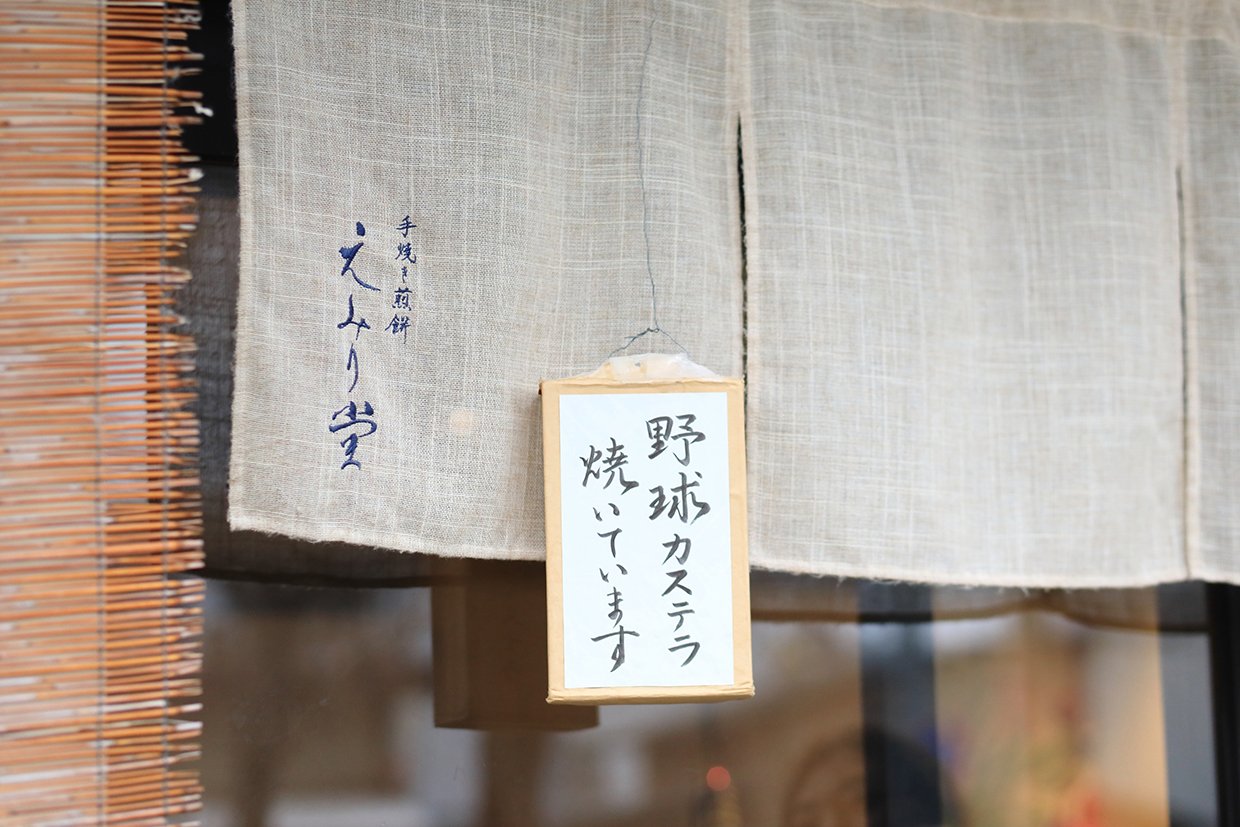 手焼き煎餅
えみり堂
野球カステラ
焼いています